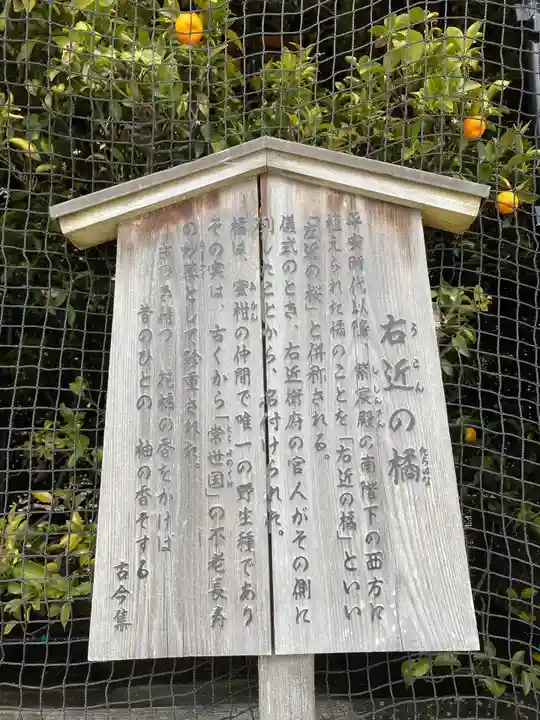 右近の橘
うこん
たちばな
平安時代以降、紫宸殿の南階下の西方に
ししんでん
植えられた橘のことを「右近の橘」といい
「左近の桜」と併称される。
儀式のとき、右近衛府の官人がその側に
列したことから、名付けられた。
橘は、蜜柑の仲間で唯一の野生種であり
みかん
その実は、古くから「常世国」の不老長寿
とこよのくに
の妙薬として珍重された。
さつき待つ 花橘の香をかげば
昔のひとの 袖の香ぞする
古今集